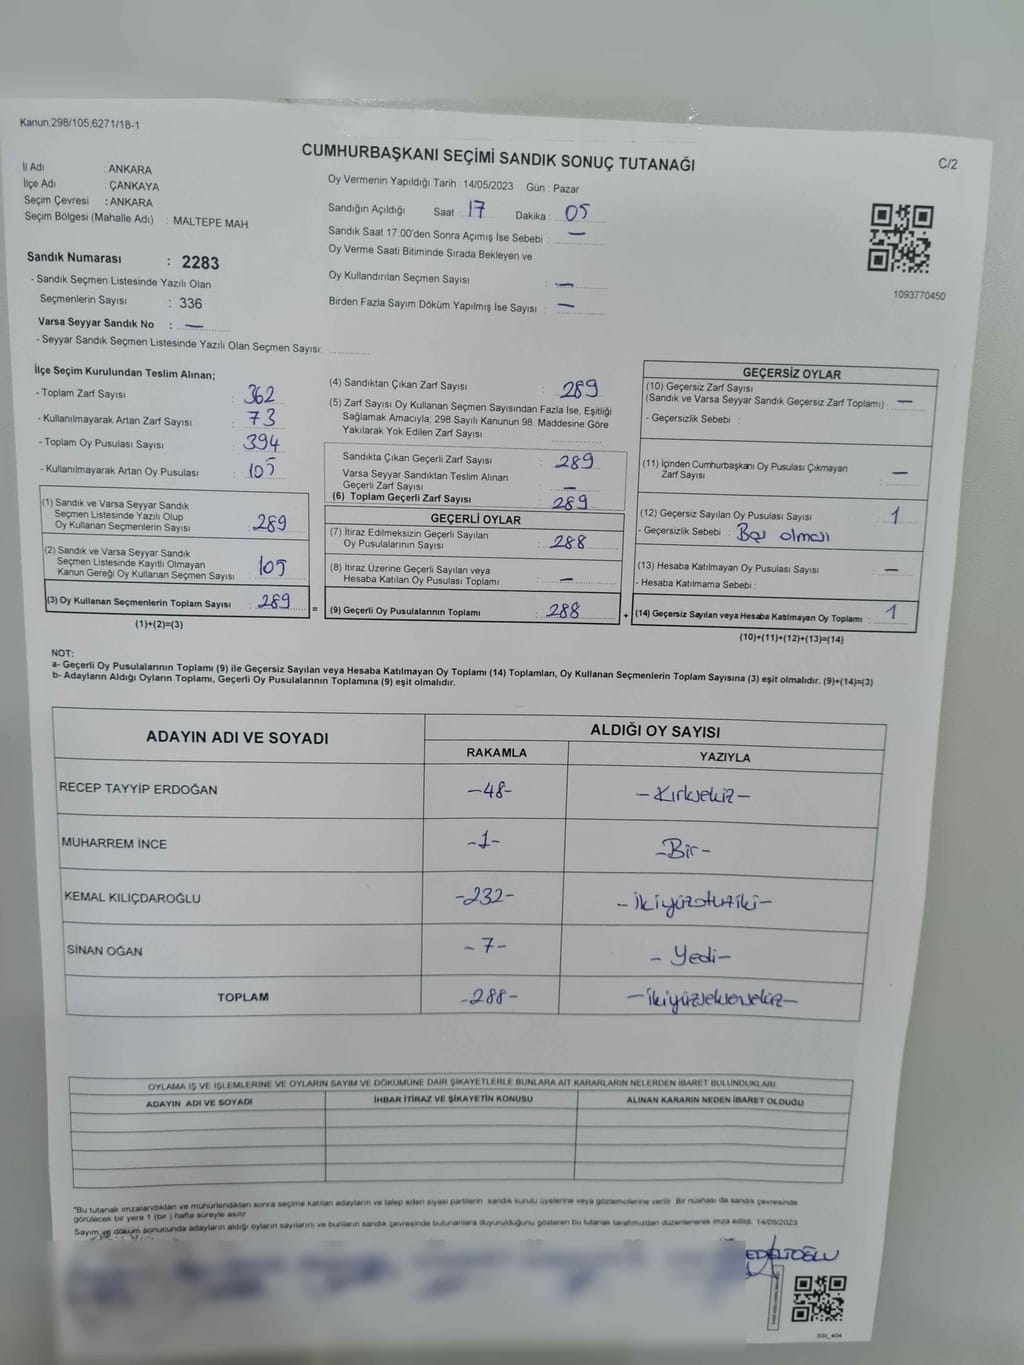 Kanun:298/105,6271/18-1
CUMHURBAŞKANI SEÇİMİ SANDIK SONUÇ TUTANAĞI
C/2
İl Adı : ANKARA
İlçe Adı : ÇANKAYA
Seçim Çevresi : ANKARA
Seçim Bölgesi (Mahalle Adı) : MALTEPE MAH.
Sandık Numarası : 2283
- Sandık Seçmen Listesinde Yazılı Olan
Seçmenlerin Sayısı : 336
Varsa Seyyar Sandık No : —
- Seyyar Sandık Seçmen Listesinde Yazılı Olan Seçmen Sayısı:
Oy Vermenin Yapıldığı Tarih 14/05/2023 Gün : Pazar
Sandığın Açıldığı Saat 17 Dakika : 05
Sandık Saat 17:00'den Sonra Açımış İse Sebebi : —
Oy Verme Saati Bitiminde Sırada Bekleyen ve
Oy Kullandırılan Seçmen Sayısı : —
Birden Fazla Sayım Döküm Yapılmış İse Sayısı : —
1093770450
İlçe Seçim Kurulundan Teslim Alınan;
- Toplam Zarf Sayısı : 362
- Kullanılmayarak Artan Zarf Sayısı : 73
- Toplam Oy Pusulası Sayısı : 394
- Kullanılmayarak Artan Oy Pusulası : 105
(1) Sandık ve Varsa Seyyar Sandık
Seçmen Listesinde Yazılı Olup
Oy Kullanan Seçmenlerin Sayısı : 289
(2) Sandık ve Varsa Seyyar Sandık
Seçmen Listesinde Kayıtlı Olmayan
Kanun Gereği Oy Kullanan Seçmen Sayısı : 105
(3) Oy Kullanan Seçmenlerin Toplam Sayısı : 289
(1)+(2)=(3)
(4) Sandıktan Çıkan Zarf Sayısı : 289
(5) Zarf Sayısı Oy Kullanan Seçmen Sayısından Fazla İse, Eşitliği
Sağlamak Amacıyla; 298 Sayılı Kanunun 98. Maddesine Göre
Yakılarak Yok Edilen Zarf Sayısı :
Sandıkta Çıkan Geçerli Zarf Sayısı : 289
Varsa Seyyar Sandıktan Teslim Alınan
Geçerli Zarf Sayısı : —
(6) Toplam Geçerli Zarf Sayısı : 289
GEÇERLİ OYLAR
(7) İtiraz Edilmeksizin Geçerli Sayılan
Oy Pusulalarının Sayısı : 288
(8) İtiraz Üzerine Geçerli Sayılan veya
Hesaba Katılan Oy Pusulası Toplamı : —
= (9) Geçerli Oy Pusulalarının Toplamı : 288
GEÇERSİZ OYLAR
(10) Geçersiz Zarf Sayısı
(Sandık ve Varsa Seyyar Sandık Geçersiz Zarf Toplamı) : —
- Geçersizlik Sebebi :
(11) İçinden Cumhurbaşkanı Oy Pusulası Çıkmayan
Zarf Sayısı : —
(12) Geçersiz Sayılan Oy Pusulası Sayısı : 1
- Geçersizlik Sebebi : Boş olması
(13) Hesaba Katılmayan Oy Pusulası Sayısı : —
- Hesaba Katılmama Sebebi :
+ (14) Geçersiz Sayılan veya Hesaba Katılmayan Oy Toplamı : 1
(10)+(11)+(12)+(13)=(14)
NOT:
a- Geçerli Oy Pusulalarının Toplamı (9) ile Geçersiz Sayılan veya Hesaba Katılmayan Oy Toplamı (14) Toplamları, Oy Kullanan Seçmenlerin Toplam Sayısına (3) eşit olmalıdır. (9)+(14)=(3)
b- Adayların Aldığı Oyların Toplamı, Geçerli Oy Pusulalarının Toplamına (9) eşit olmalıdır.
ADAYIN ADI VE SOYADI
ALDIĞI OY SAYISI
RAKAMLA YAZIYLA
RECEP TAYYİP ERDOĞAN -48- -Kırksekiz-
MUHARREM İNCE -1- -Bir-
KEMAL KILIÇDAROĞLU -232- -İkiyüzotuziki-
SİNAN OĞAN -7- -Yedi-
TOPLAM -288- -İkiyüzseksensekiz-
OYLAMA İŞ VE İŞLEMLERİNE VE OYLARIN SAYIM VE DÖKÜMÜNE DAİR ŞİKAYETLERLE BUNLARA AİT KARARLARIN NELERDEN İBARET BULUNDUKLARI
ADAYIN ADI VE SOYADI İHBAR İTİRAZ VE ŞİKAYETİN KONUSU ALINAN KARARIN NEDEN İBARET OLDUĞU
*Bu tutanak imzalandıktan ve mühürlendikten sonra seçime katılan adayların ve talep eden siyasi partilerin sandık kurulu üyelerine veya gözlemcilerine verilir. Bir nüshası da sandık çevresinde
görülecek bir yere 1 (bir ) hafta süreyle asılır.
Sayım ve döküm sonucunda adayların aldığı oyların sayılarını ve bunların sandık çevresinde bulunanlara duyurulduğunu gösteren bu tutanak tarafımızdan düzenlenerek imza edildi. 14/05/2023